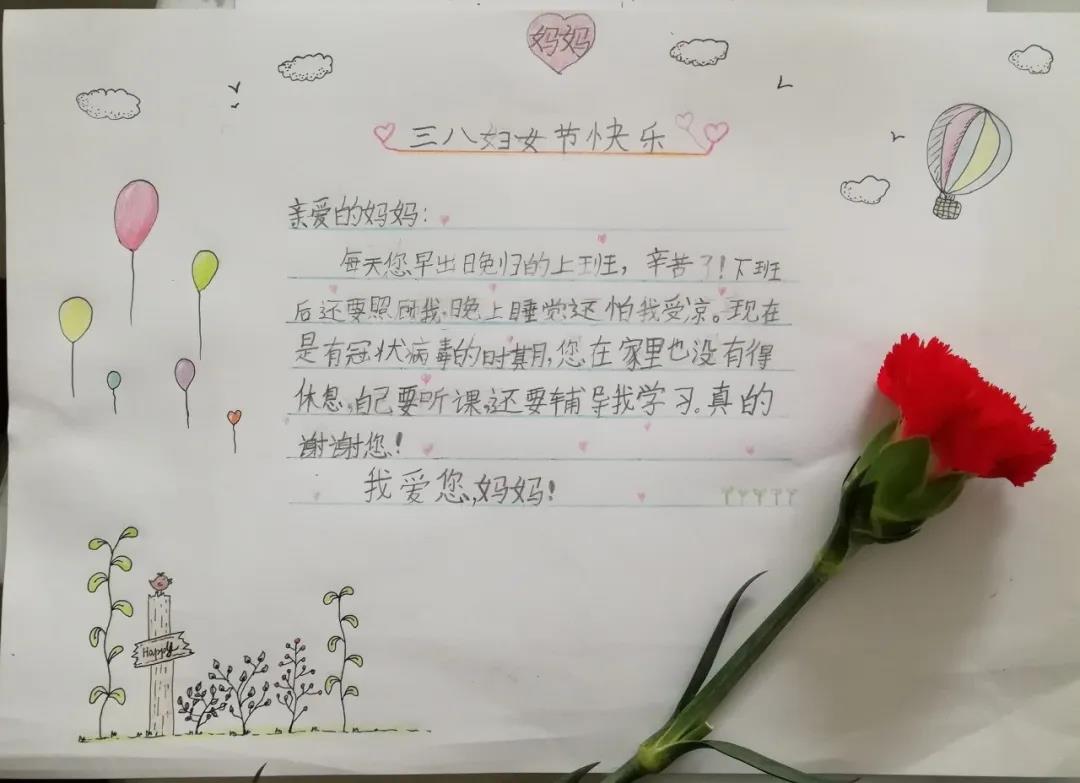 妈妈
三八妇女节快乐
亲爱的妈妈:
每天您早出晚归的上班，辛苦了！下班
后还要照顾我,晚上睡觉还怕我受凉。现在
是有冠状病毒的时期,您在家里也没有得
休息,自己要听课,还要辅导我学习。真的
谢谢您！
我爱您,妈妈！
Happy